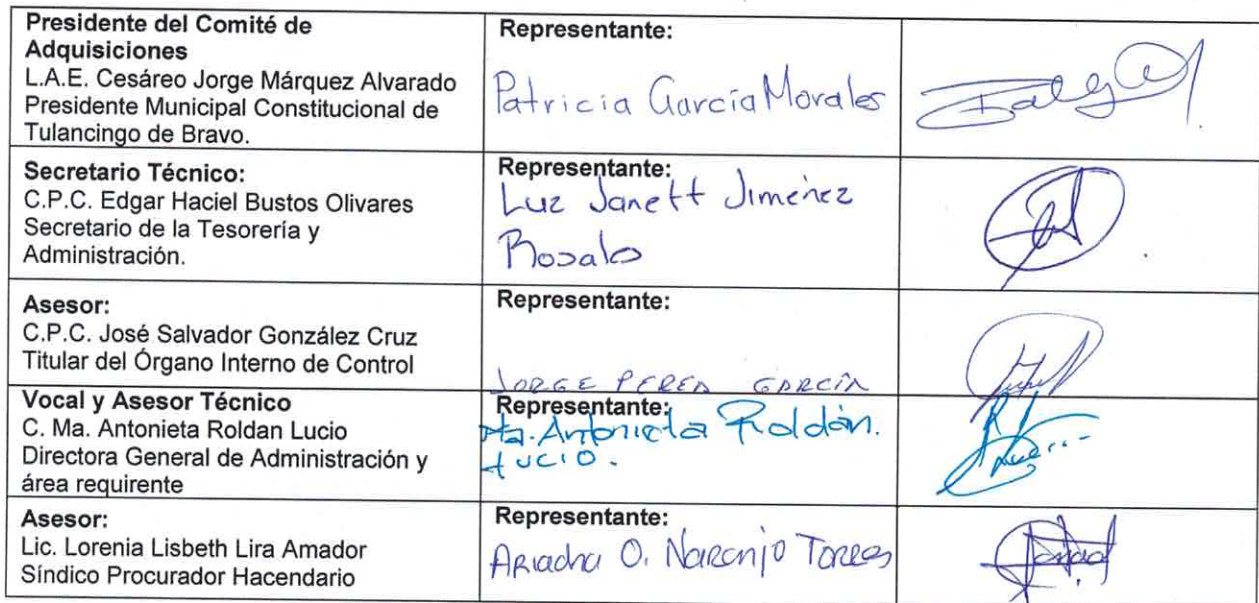 Presidente del Comité de
Adquisiciones
L.A.E. Cesáreo Jorge Márquez Alvarado
Presidente Municipal Constitucional de
Tulancingo de Bravo.
Representante:
Patricia García Morales
Secretario Técnico:
C.P.C. Edgar Haciel Bustos Olivares
Secretario de la Tesorería y
Administración.
Representante:
Luz Janett Jiménez
Rosales
Asesor:
C.P.C. José Salvador González Cruz
Titular del Órgano Interno de Control
Representante:
JORGE PEREA GARCÍA
Vocal y Asesor Técnico
C. Ma. Antonieta Roldan Lucio
Directora General de Administración y
área requirente
Representante:
Ma. Antonieta Roldán.
Lucio.
Asesor:
Lic. Lorenia Lisbeth Lira Amador
Síndico Procurador Hacendario
Representante:
Ariadna O. Naranjo Torres